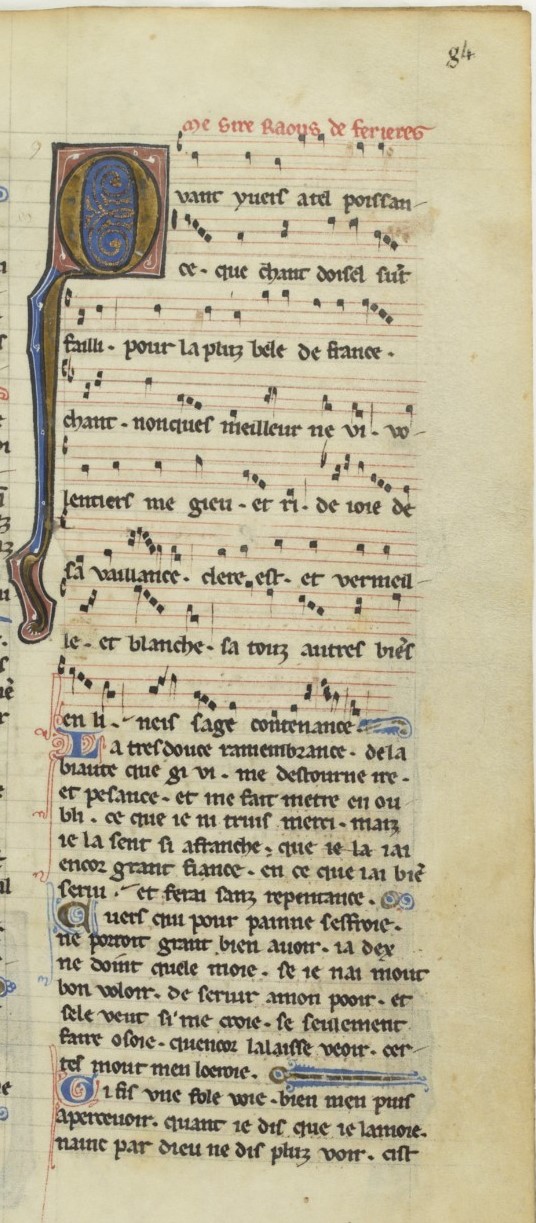 84
Me sire Raous de ferieres
Quant yuers a tel poissan-
ce. que chant doisel sūt
failli. pour la pluz bele de france.
chant. nonques meilleur ne vi. vo-
lentiers me gieu. et ri. de ioie de
sa vaillance. clere est. et vermeil-
le. et blanche. sa touz autres biēs
en li. neis sage contenance
La tresdouce ramembrance. de la
biaute que gi vi. me destourne ire.
et pesance. et me fait metre en ou
bli. ce que ie ni truis merci. maiz
ie la sent si a franche. que ie la iai
encor grant fiance. en ce que iai biē
serui. et ferai sanz repentance.
Cuers qui pour painne seffroie.
ne porroit grant bien auoir. ia dex
ne doint quele moie. se ie nai mout
bon voloir. de seruir a mon pooir. et
sele veut si me croie. se seulement
faire osoie. quencor la laisse veoir. cer-
tes mout men loeroie.
Gi fis vne fole voie. bien men puis
apercevoir. quant ie dis que ie lamoie.
nainc par dieu ne dis pluz voir. cist